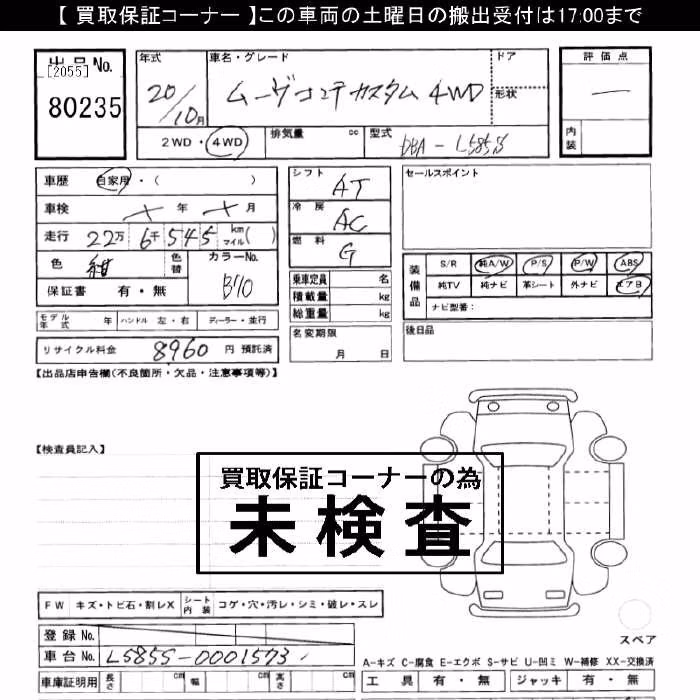 【 買取保証コーナー 】この車両の土曜日の搬出受付は17:00まで
出品No.
[2055]
80235
年式
20/10月
車名・グレード
ムーヴコンテカスタム 4WD
ドア
形状
評価点
—
内装
2WD・4WD
排気量 cc
型式
DBA-L585S
車歴 自家用・( )
車検 × 年 × 月
走行 22万 6千 545 km マイル( )
色 紺 色替
カラーNo.
B70
保証書 有・無
モデル年式 年 ハンドル 左・右 ディーラー・並行
リサイクル料金 8960 円 預託済
シフト AT
冷房 AC
燃料 G
乗車定員 名
積載量 kg
総重量 kg
名変期限
月 日
セールスポイント
装備品
S/R 純A/W P/S P/W ABS
純TV 純ナビ 革シート 外ナビ エアB
ナビ型番:
後日品
【出品店申告欄(不良箇所・欠品・注意事項等)】
【検査員記入】
買取保証コーナーの為
未検査
FW キズ・トビ石・割レX シート内装 コゲ・穴・汚レ・シミ・破レ・スレ
登録No.
車台No. L585S-0001573
車庫証明用 長さ cm 幅 cm 高さ cm
スペア
A-キズ C-腐食 E-エクボ S-サビ U-凹ミ W-補修 XX-交換済
工具 有・無 ジャッキ 有・無